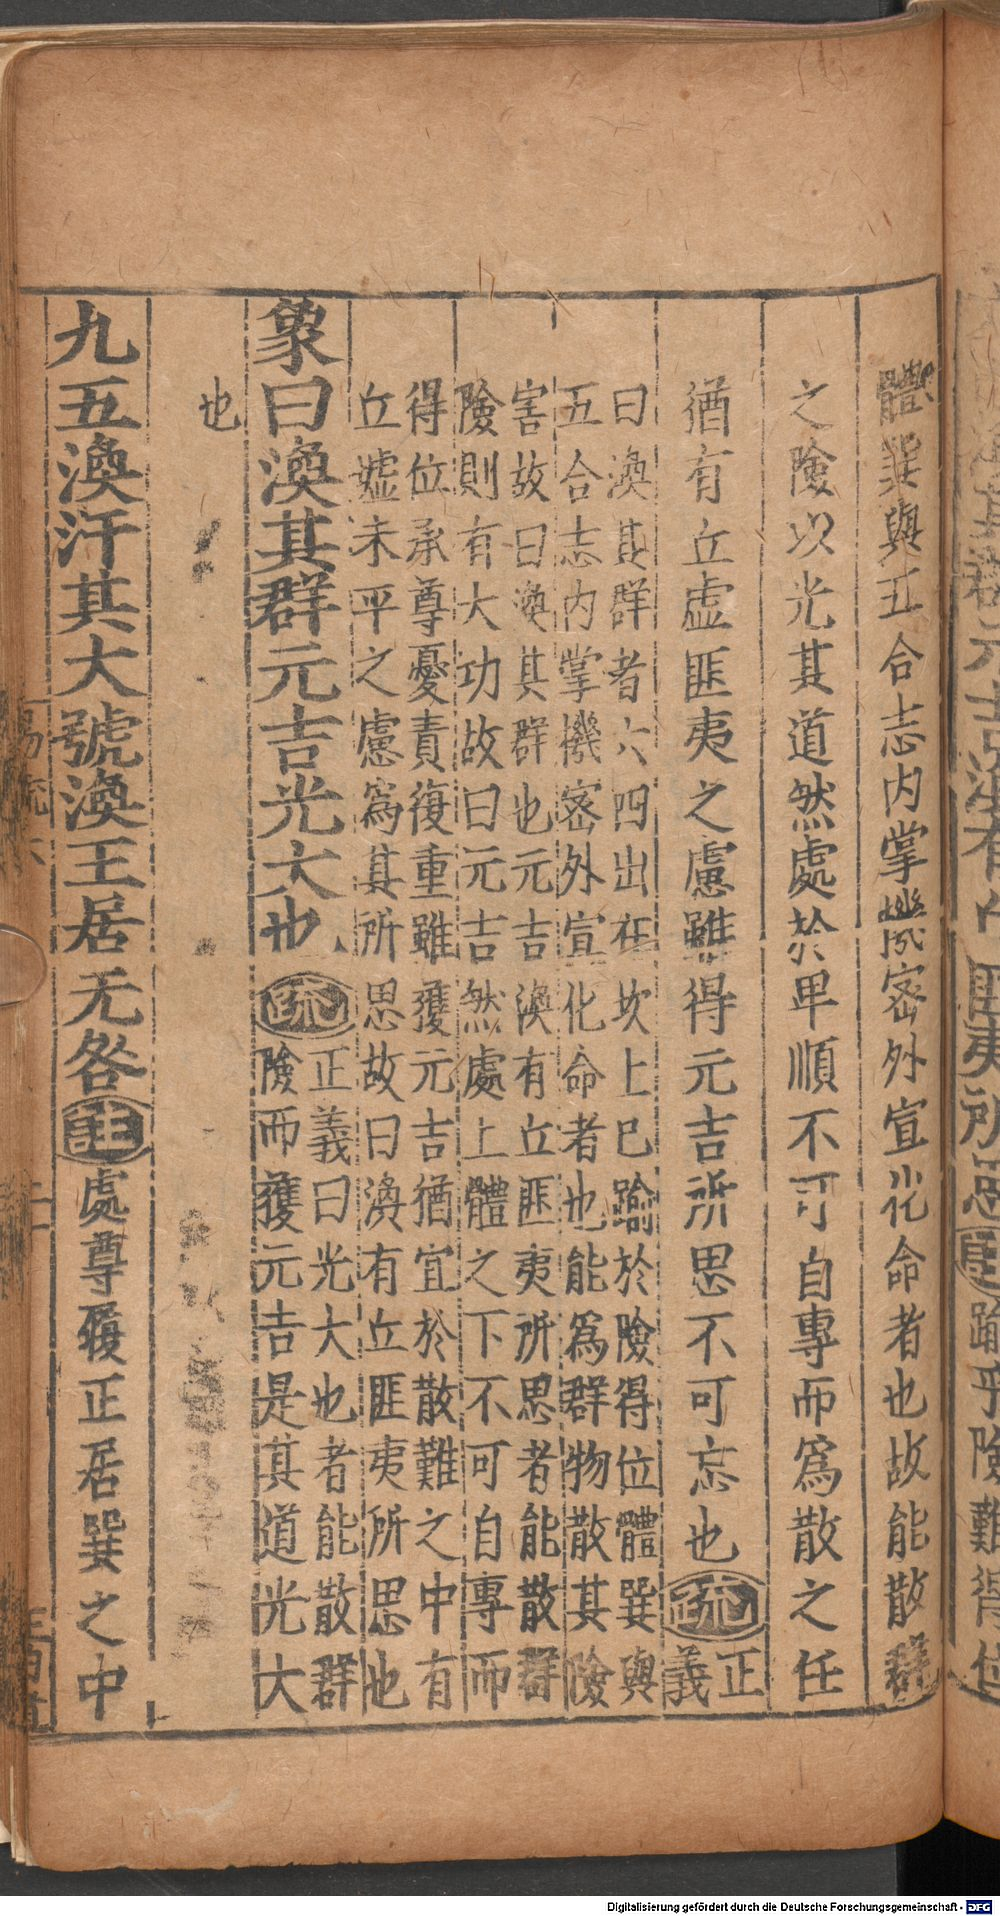 體巽與五合志內掌機密外宣化命者也故能散群
之險以光其道然處於卑順不可自專而爲散之任
猶有丘虛匪夷之慮雖得元吉所思不可忘也疏正
義
曰渙其群者六四出在坎上已踰於險得位體巽與
五合志內掌機密外宣化命者也能爲群物散其險
害故曰渙其群也元吉渙有丘匪夷所思者能散群
險則有大功故曰元吉然處上體之下不可自專而
得位承尊憂責復重雖獲元吉猶宜於散難之中有
丘墟未平之慮爲其所思故曰渙有丘匪夷所思也
象曰渙其群元吉光大也疏
正義曰光大也者能散群
險而獲元吉是其道光大
也
九五渙汗其大號渙王居无咎註處尊履正居巽之中
Digitalisierung gefördert durch die Deutsche Forschungsgemeinschaft - DFG